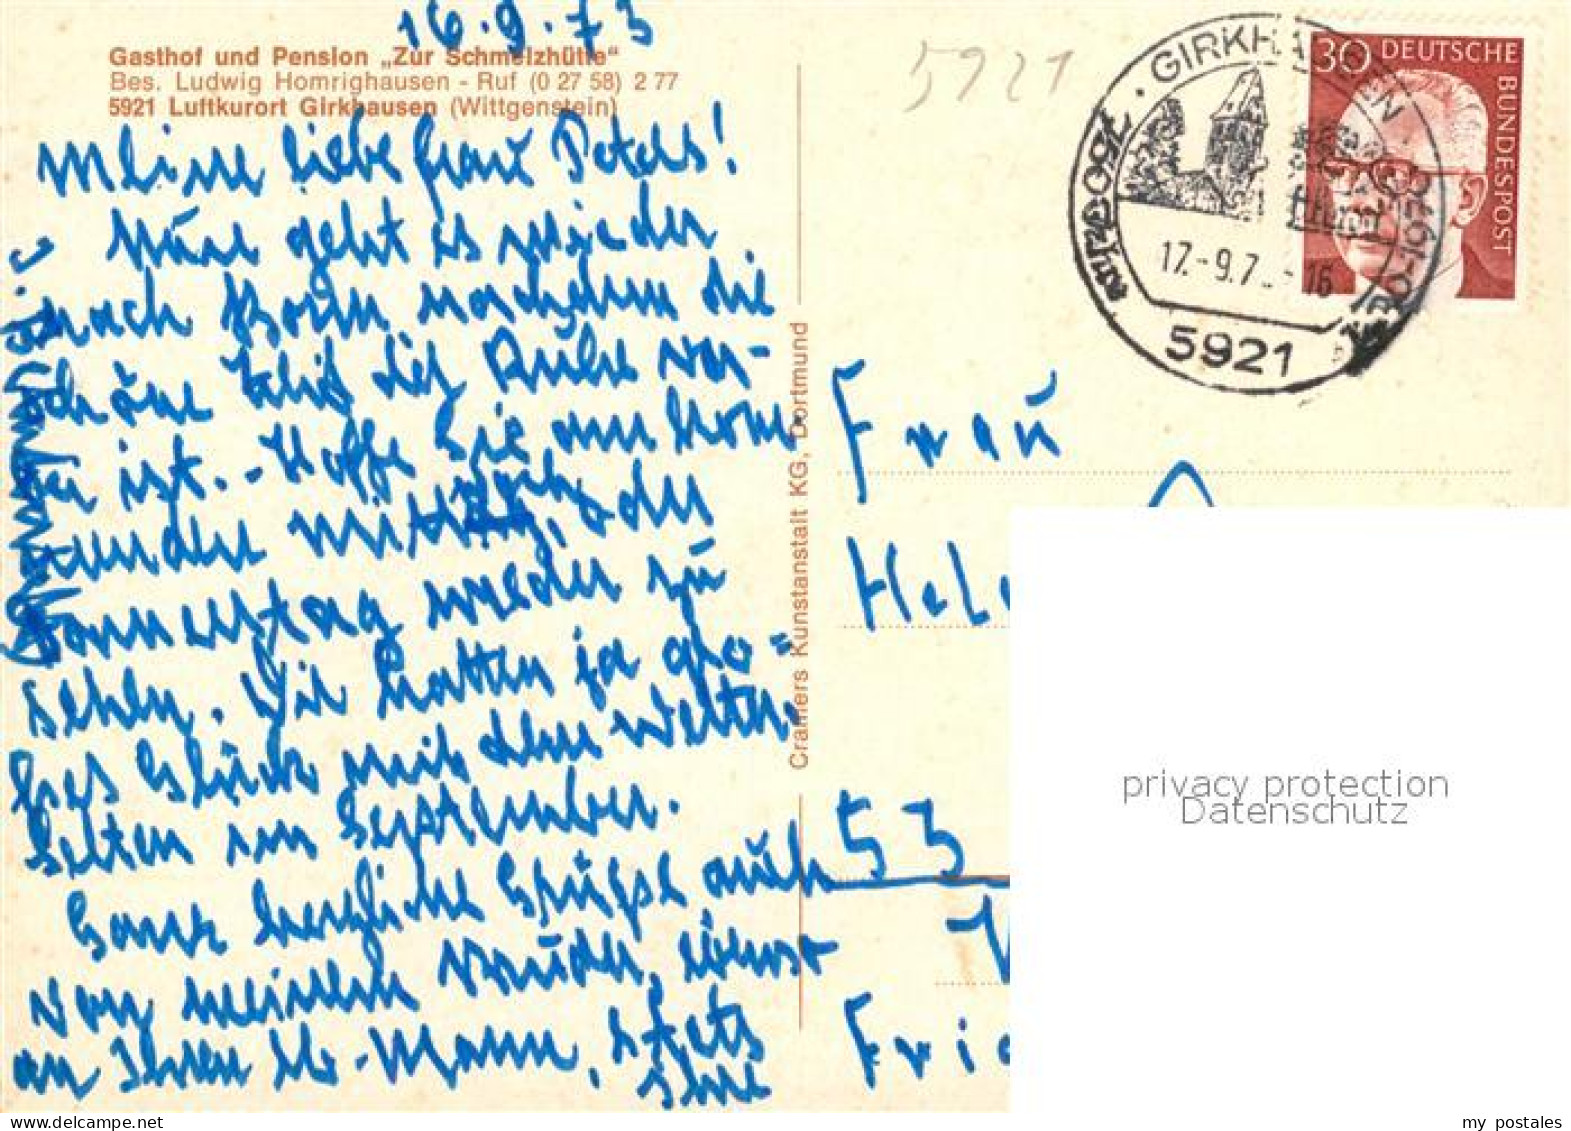 16.9.73
Gasthof und Pension „Zur Schmelzhütte"
Bes. Ludwig Homrighausen - Ruf (0 27 58) 2 77
5921 Luftkurort Girkhausen (Wittgenstein)
Meine liebe Frau Peters!
Nun geht es wieder
nach Bonn, nachdem die
schöne Zeit der Ruhe vor-
bei ist. - Hoffe Sie am kom-
menden Mittwoch, oder
Donnerstag wieder zu
sehen. Wir hatten ja gro-
ßes Glück mit dem Wetter,
selten im September.
Ganz herzliche Grüße auch
von meinem Bruder, ebenso
an Ihren lb. Mann, stets
Ihre
Cramers Kunstanstalt KG, Dortmund
5921
GIRKHAUSEN
17.-9.7 - 16
5921
30 DEUTSCHE
BUNDESPOST
Frau
Hel
53
Frie
privacy protection
Datenschutz
my_postales